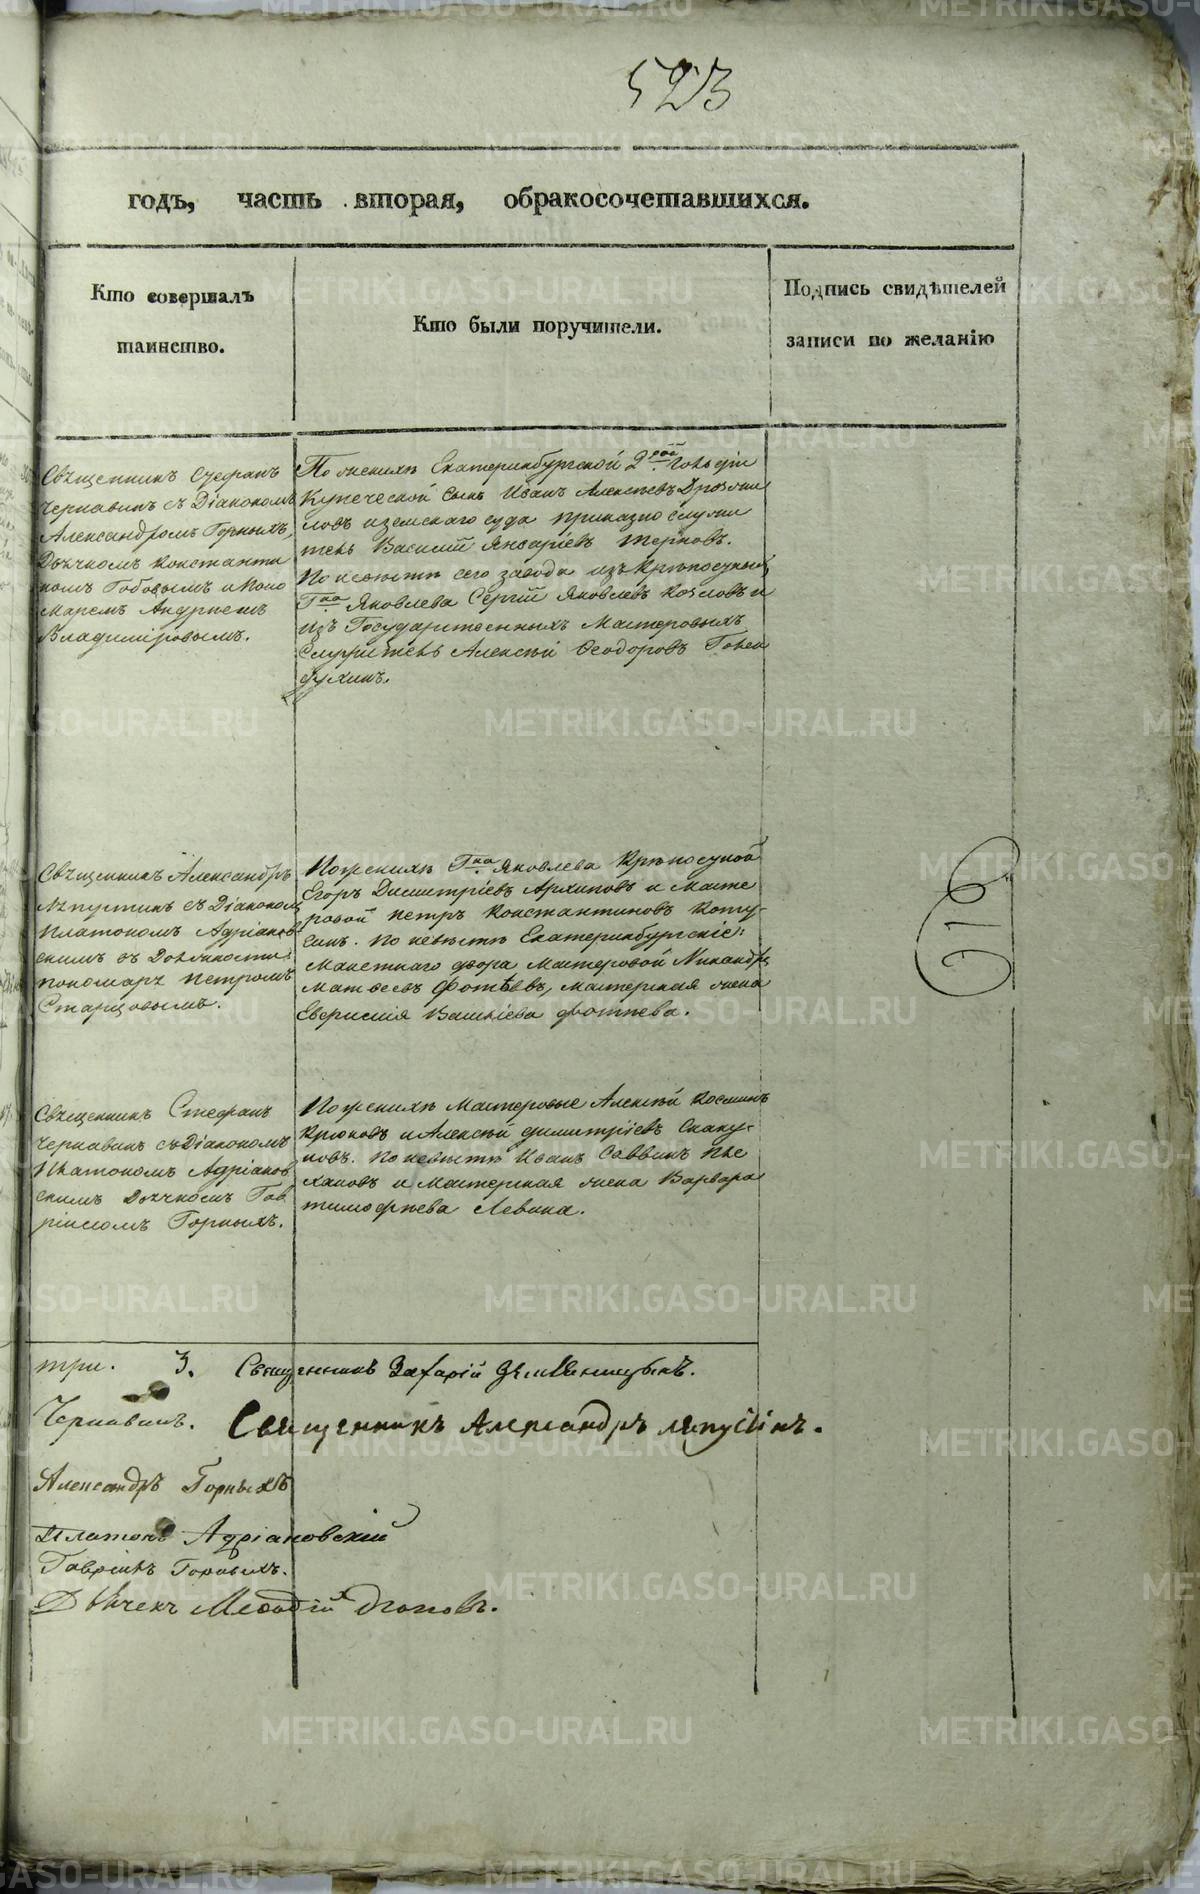 523
годъ, часть вторая, обракосочетавшихся.
Кто совершалъ
таинство.
Кто были поручители.
Подпись свидѣтелей
записи по желанію
Священникъ Стефанъ
Чернавинъ съ Діакономъ
Александромъ Горныхъ,
Дьячкомъ Константи
номъ и Поно
маремъ Андреемъ
Владиміровымъ.
По женихѣ Екатеринбургской 2рой Гильдіи
Купеческой сынъ Иванъ Алексѣевъ
ловъ иземскаго суда приказно служи
тель Василій Терновъ.
По невѣстѣ сего завода изъ Крѣпосныхъ
Гна Яковлева Сергій Яковлевъ Козловъ и
изъ Государственныхъ Мастеровыхъ
Служитель Алексѣй Ѳеодоровъ Голен
духинъ.
Священникъ Александръ
Ляпустинъ съ Діакономъ
Платономъ Адріанов
скимъ въ Должности
пономаря Петромъ
Старцовымъ.
По женихѣ Гна Яковлева Крѣпосной
Егоръ Димитріевъ Архиповъ и Масте
ровой Петръ Константиновъ
По невѣстѣ Екатеринбургскіе:
Манетнаго двора Мастеровой Никандръ
Матвеевъ Фотѣевъ, мастерская жена
Фотѣева.
Священникъ Стефанъ
Чернавинъ съ Діакономъ
Платономъ Адріанов
скимъ Дьячкомъ Гав
ріиломъ Горныхъ.
По женихѣ Мастеровые Алексѣй Косминъ
Крюковъ и Алексѣй Димитріевъ Скаку
новъ. По невѣстѣ Иванъ Саввинъ Пле
хановъ и Мастерская жена Варвара
Тимофѣева Левина.
три. 3. Священникъ Захарій Земляницынъ.
Чернавинъ. Священникъ Александръ Ляпустинъ.
Александръ Горныхъ
Платонъ Адріановскій
Гавріилъ Горныхъ.
Дьячекъ Меѳодій Поповъ.
METRIKI.GASO-URAL.RU